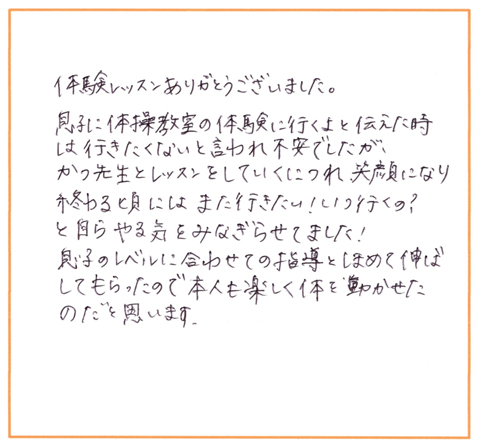 体験レッスンありがとうございました。
息子に体操教室の体験に行くよと伝えた時
は行きたくないと言われ不安でしたが、
かつ先生とレッスンをしていくにつれ、笑顔になり
終わる頃には また行きたい！いつ行くの？
と自らやる気をみなぎらせてました！
息子のレベルに合わせての指導とほめて伸ば
してもらったので本人も楽しく体を動かせた
のだと思います。